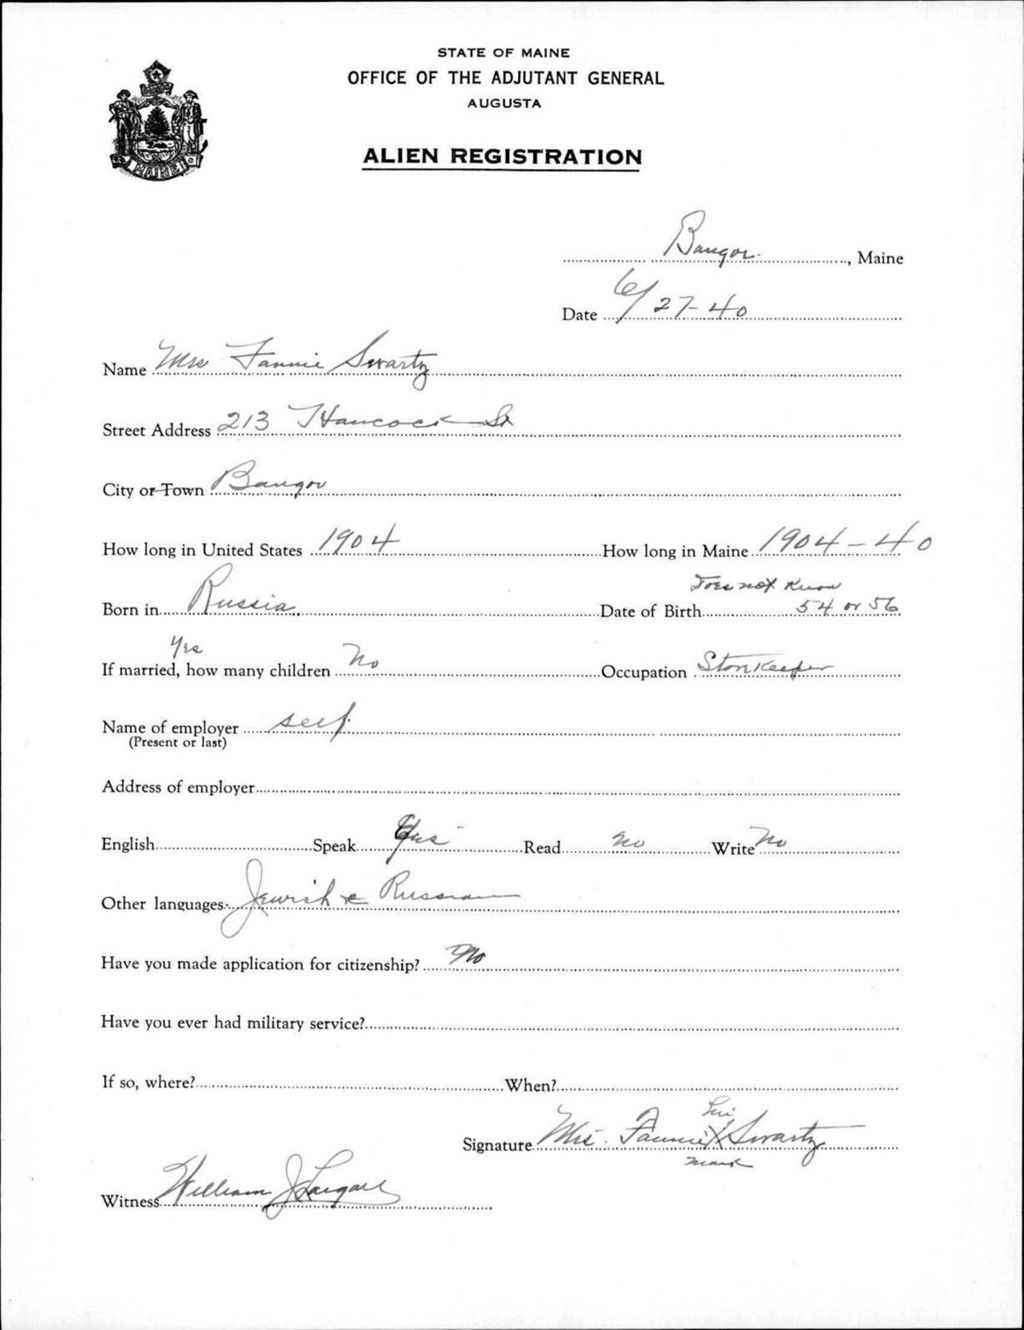 STATE OF MAINE
OFFICE OF THE ADJUTANT GENERAL
AUGUSTA
ALIEN REGISTRATION
MAINE
Bangor, Maine
Date 6/27-40
Name Mrs Fannie Swartz
Street Address 213 Hancock St
City or Town Bangor
How long in United States 1904 How long in Maine 1904-40
Does not know
Born in Russia Date of Birth 54 or 56
Yes
If married, how many children No Occupation Storekeeper
Name of employer self
(Present or last)
Address of employer
English Speak Yes Read No Write No
Other languages Jewish & Russian
Have you made application for citizenship? No
Have you ever had military service?
If so, where? When?
Signature Mrs. Fannie X Swartz
mark
Witness William J